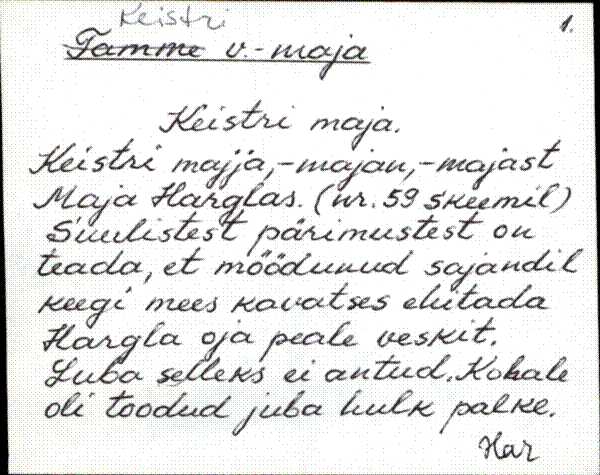 Keistri
1.
Tamme v.-maja
Keistri maja.
Keistri majja,-majan,-majast
Maja Harglas. (nr. 59 skeemil)
Suulistest pärimustest on
teada, et möödunud sajandil
keegi mees kavatses ehitada
Hargla oja peale veskit.
Luba selleks ei antud. Kohale
oli toodud juba hulk palke.
Har